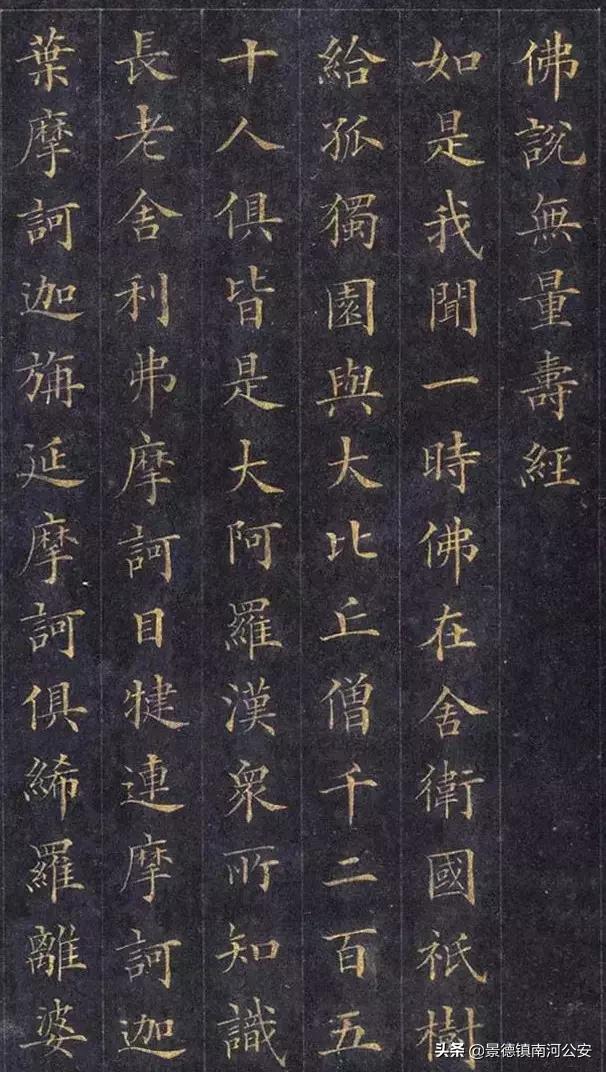 佛說無量壽經
如是我聞一時佛在舍衛國祇樹
給孤獨園與大比丘僧千二百五
十人俱皆是大阿羅漢衆所知識
長老舍利弗摩訶目犍連摩訶迦
葉摩訶迦旃延摩訶俱絺羅離婆
头条 @景德镇南河公安